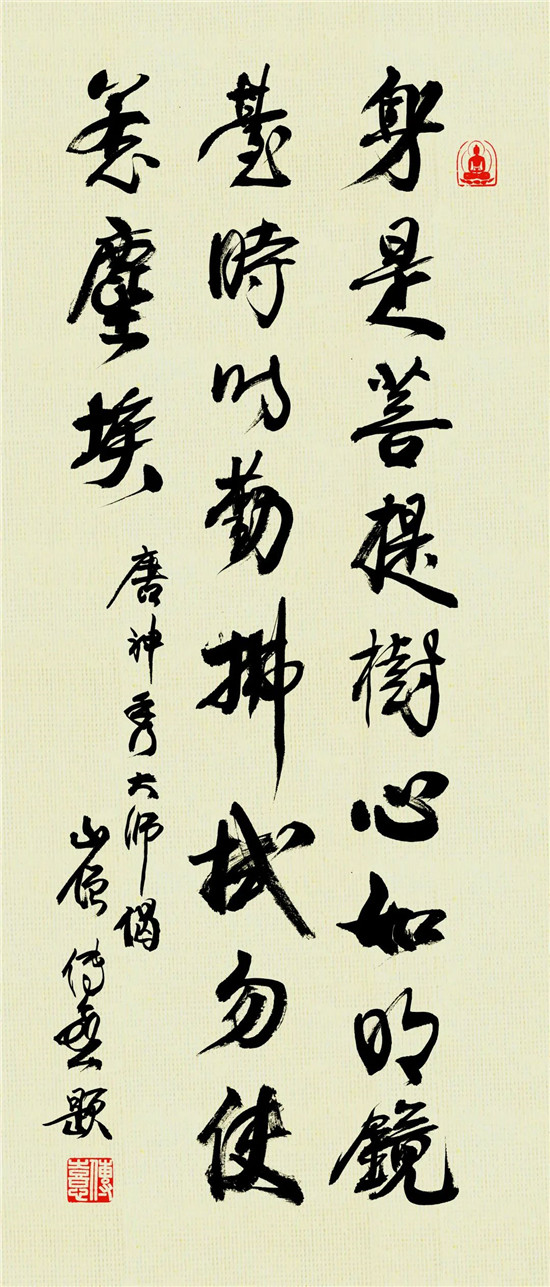 身是菩提樹心如明鏡
臺時時勤拂拭勿使
惹塵埃
唐神秀大师偈
山僧傳題